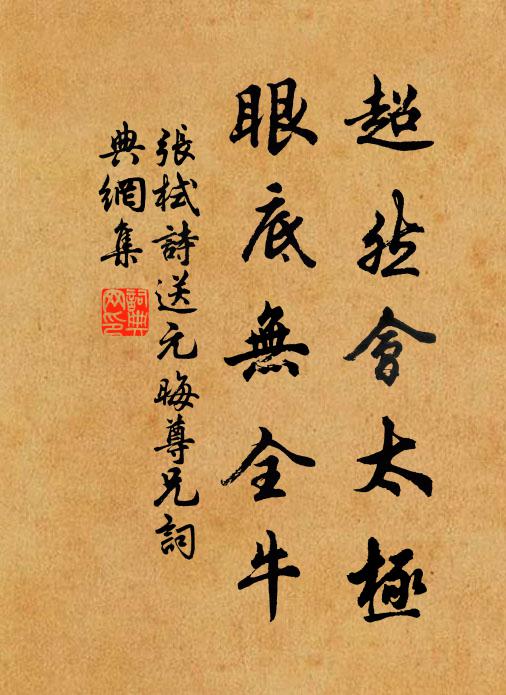 超然會太極
眼底無全牛
張栻詩送元晦尊兄詞
典網集
詞典網印